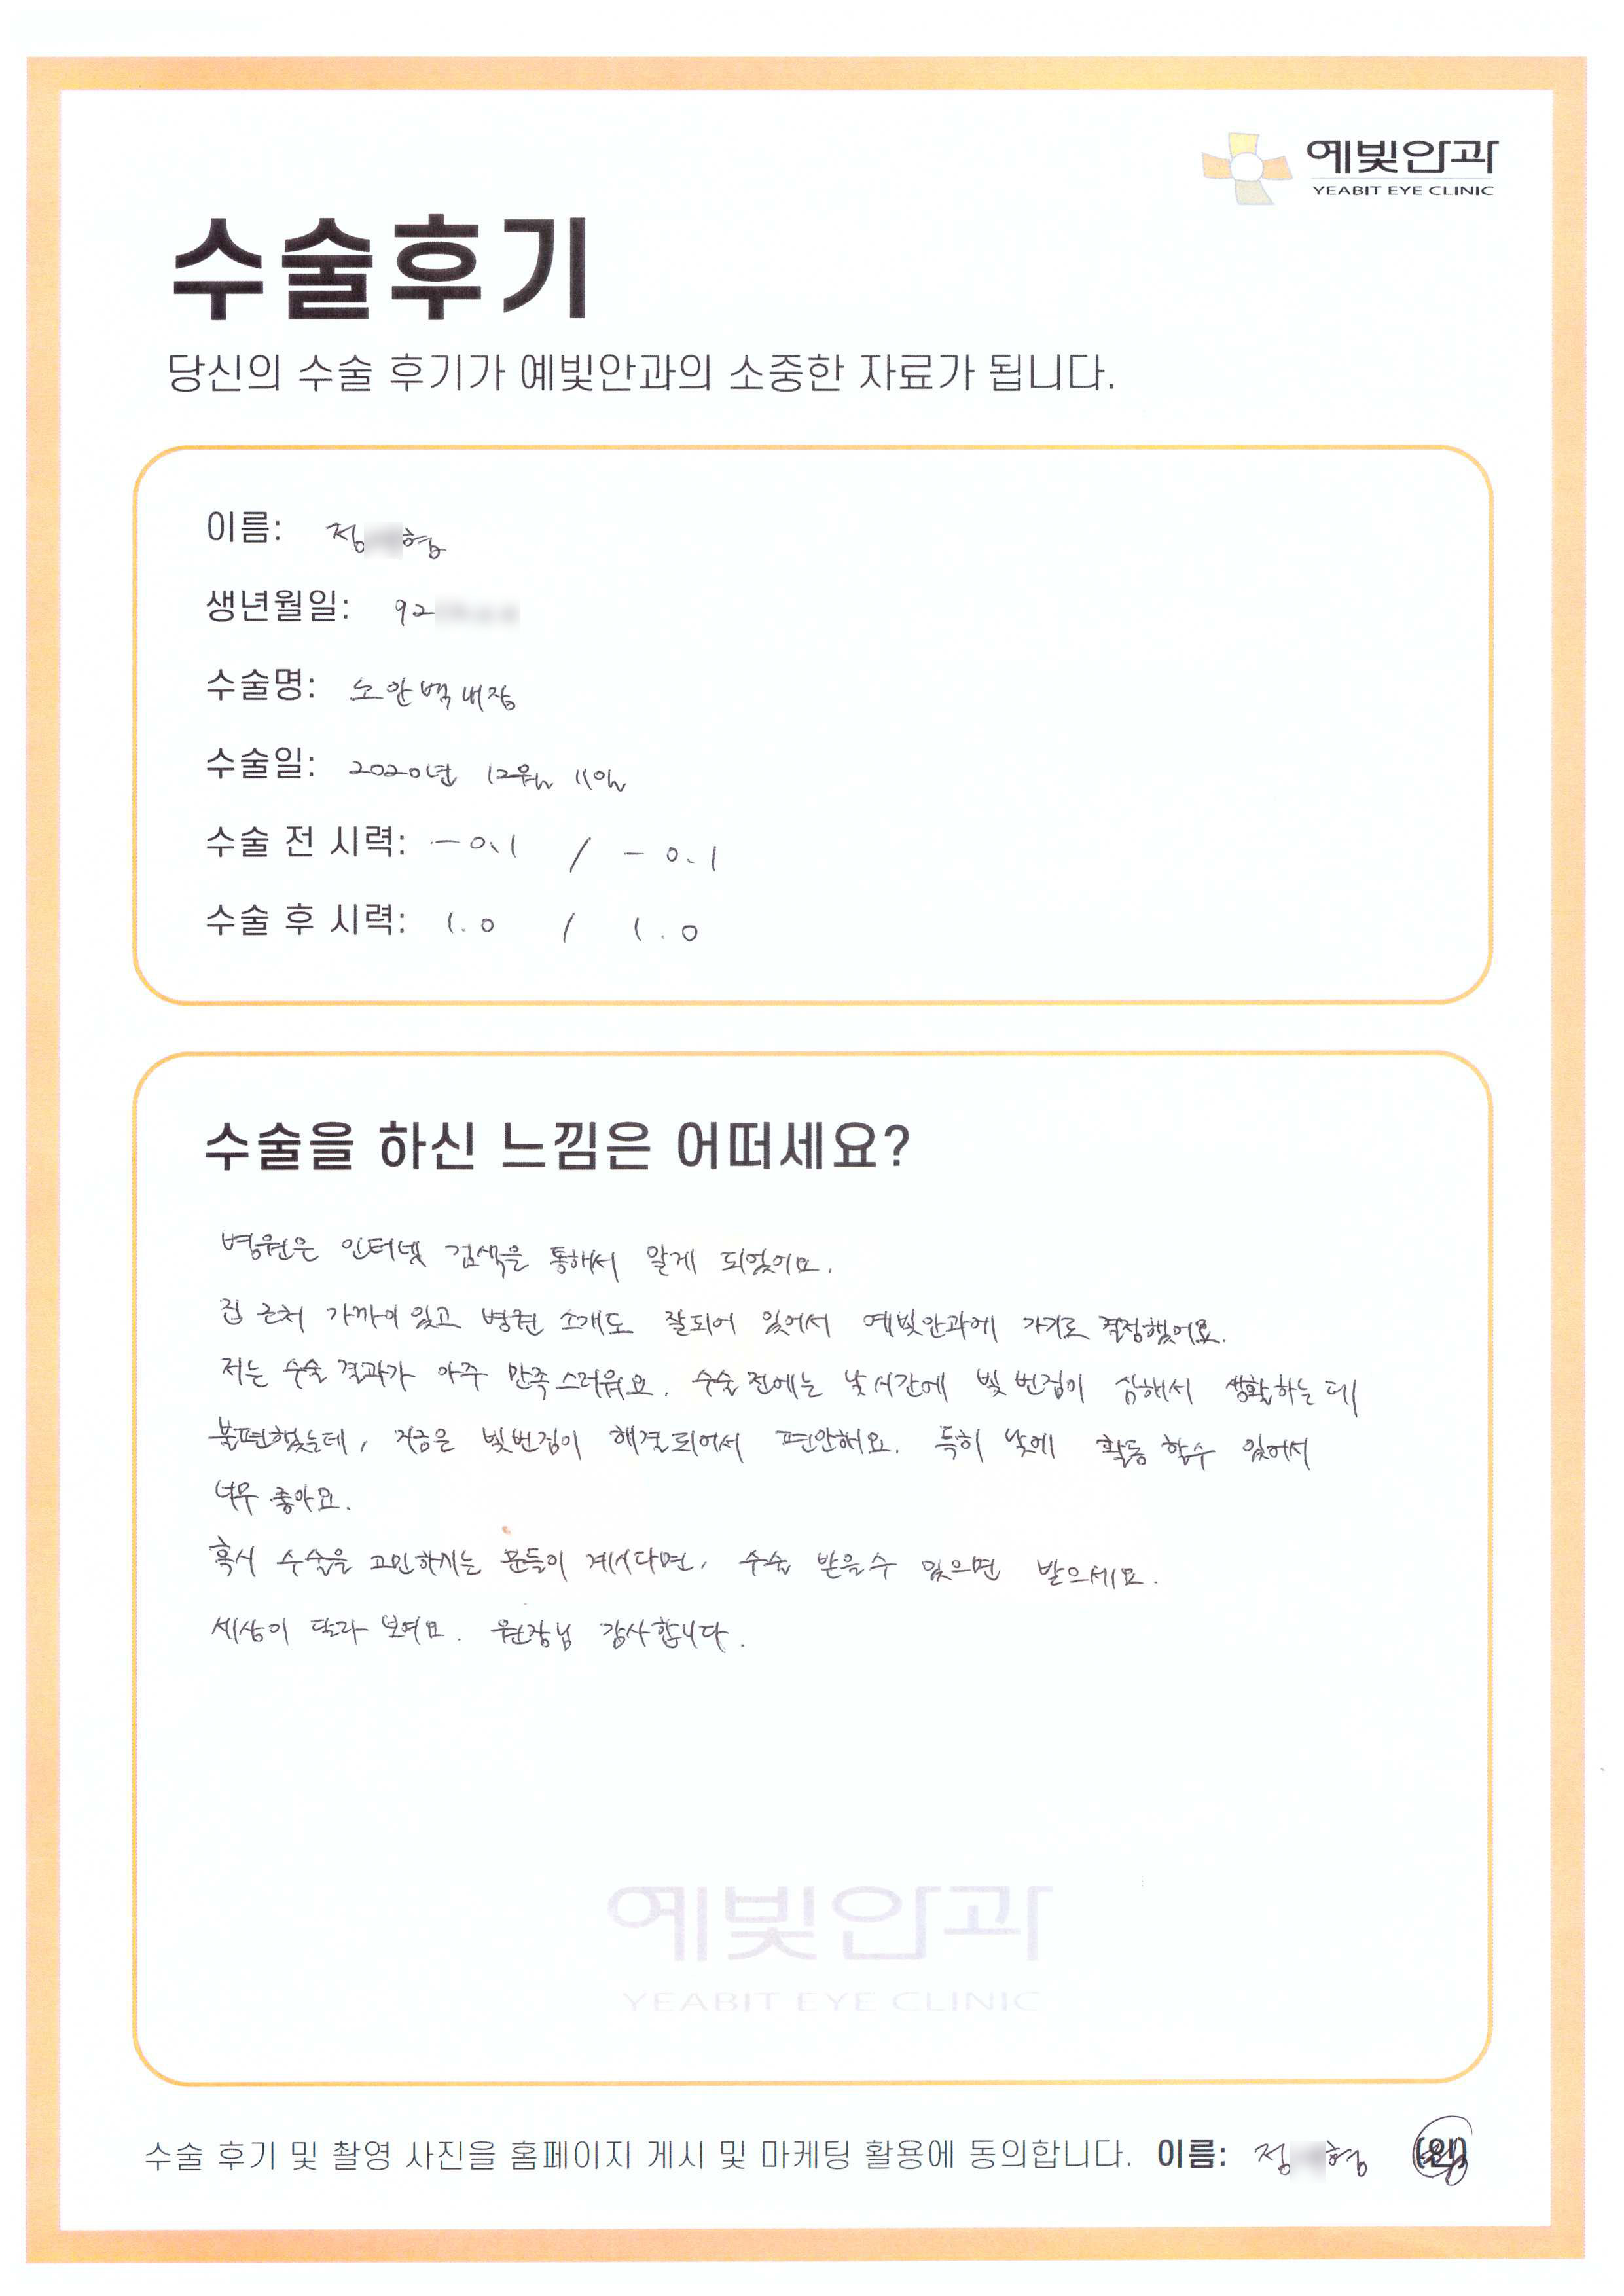 예빛안과
YEABIT EYE CLINIC
수술후기
당신의 수술 후기가 예빛안과의 소중한 자료가 됩니다.
이름: 정 형
생년월일: 92
수술명: 노안백내장
수술일: 2020년 12월 11일
수술 전 시력: -0.1 / -0.1
수술 후 시력: 1.0 / 1.0
수술을 하신 느낌은 어떠세요?
병원은 인터넷 검색을 통해서 알게 되었어요.
집 근처 가까이 있고 병원 소개도 잘되어 있어서 예빛안과에 가기로 결정했어요.
저는 수술 결과가 아주 만족스러워요. 수술 전에는 낮 시간에 빛 번짐이 심해서 생활하는데
불편했는데, 지금은 빛번짐이 해결되어서 편안해요. 특히 낮에 활동 할수 있어서
너무 좋아요.
혹시 수술을 고민하시는 분들이 계시다면, 수술 받을수 있으면 받으세요.
세상이 달라 보여요. 원장님 감사합니다.
예빛안과
YEABIT EYE CLINIC
수술 후기 및 촬영 사진을 홈페이지 게시 및 마케팅 활용에 동의합니다. 이름: 정 형 (인)